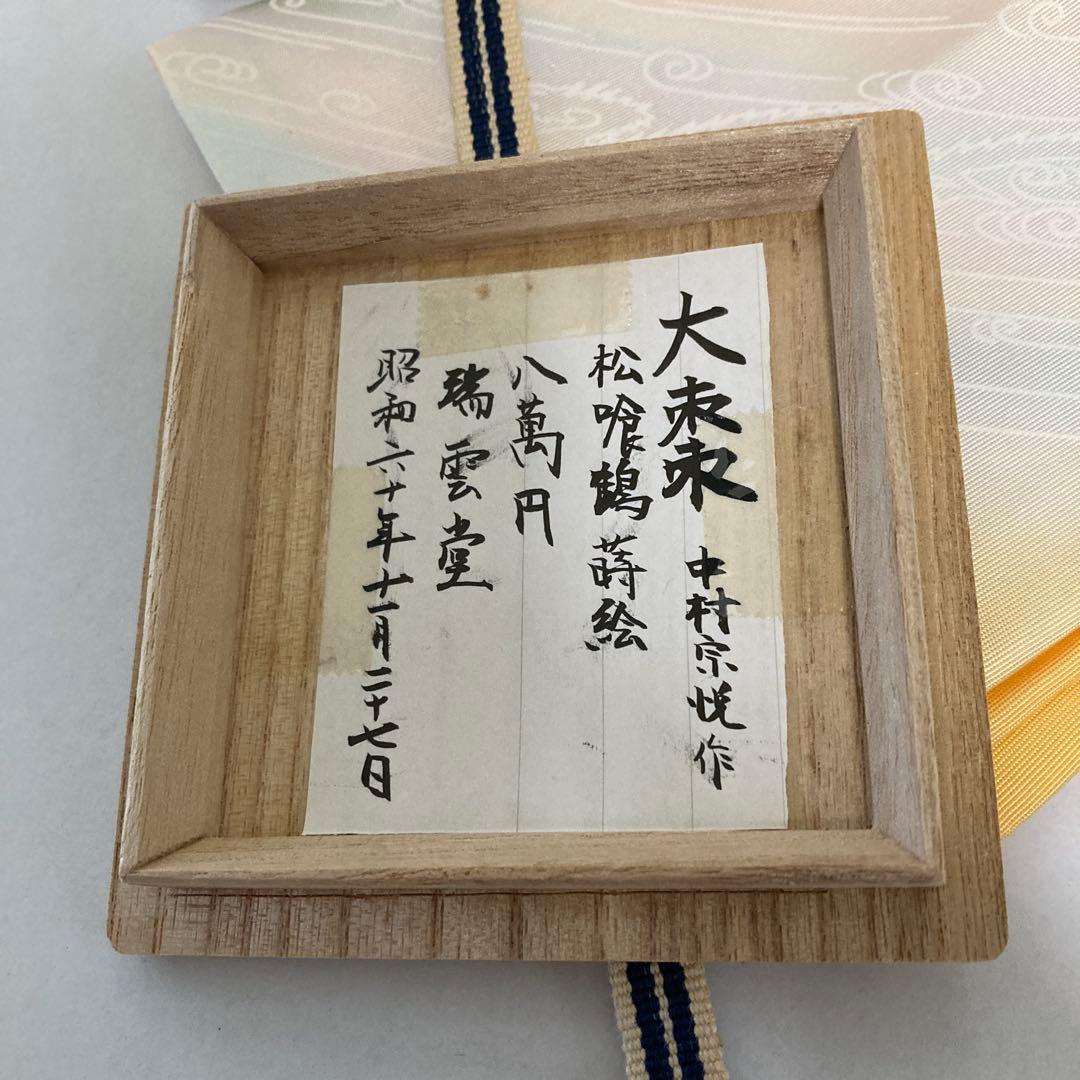 大棗 中村宗悦作
松喰鶴蒔絵
八萬円
瑞雲堂
昭和六十年十一月二十七日